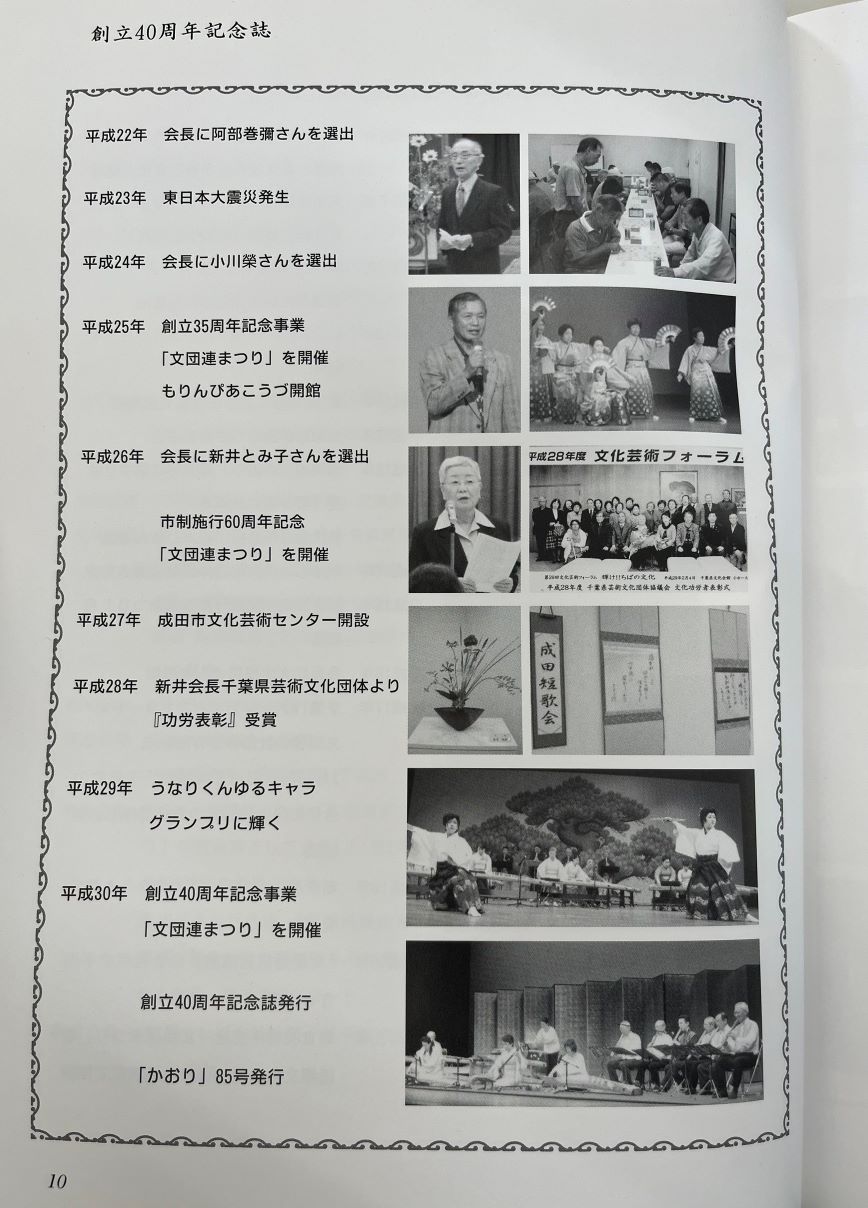 創立40周年記念誌
平成22年　会長に阿部巻彌さんを選出
平成23年　東日本大震災発生
平成24年　会長に小川榮さんを選出
平成25年　創立35周年記念事業
「文団連まつり」を開催
もりんぴあこうづ開館
平成26年　会長に新井とみ子さんを選出
市制施行60周年記念
「文団連まつり」を開催
平成27年　成田市文化芸術センター開設
平成28年　新井会長千葉県芸術文化団体より
『功労表彰』受賞
平成29年　うなりくんゆるキャラ
グランプリに輝く
平成30年　創立40周年記念事業
「文団連まつり」を開催
創立40周年記念誌発行
「かおり」85号発行
平成28年度 文化芸術フォーラム
第28回文化芸術フォーラム 輝け!!ちばの文化 平成29年2月4日 千葉県文化会館
平成28年度 千葉県芸術文化団体協議会 文化功労者表彰式
成田短歌会
10